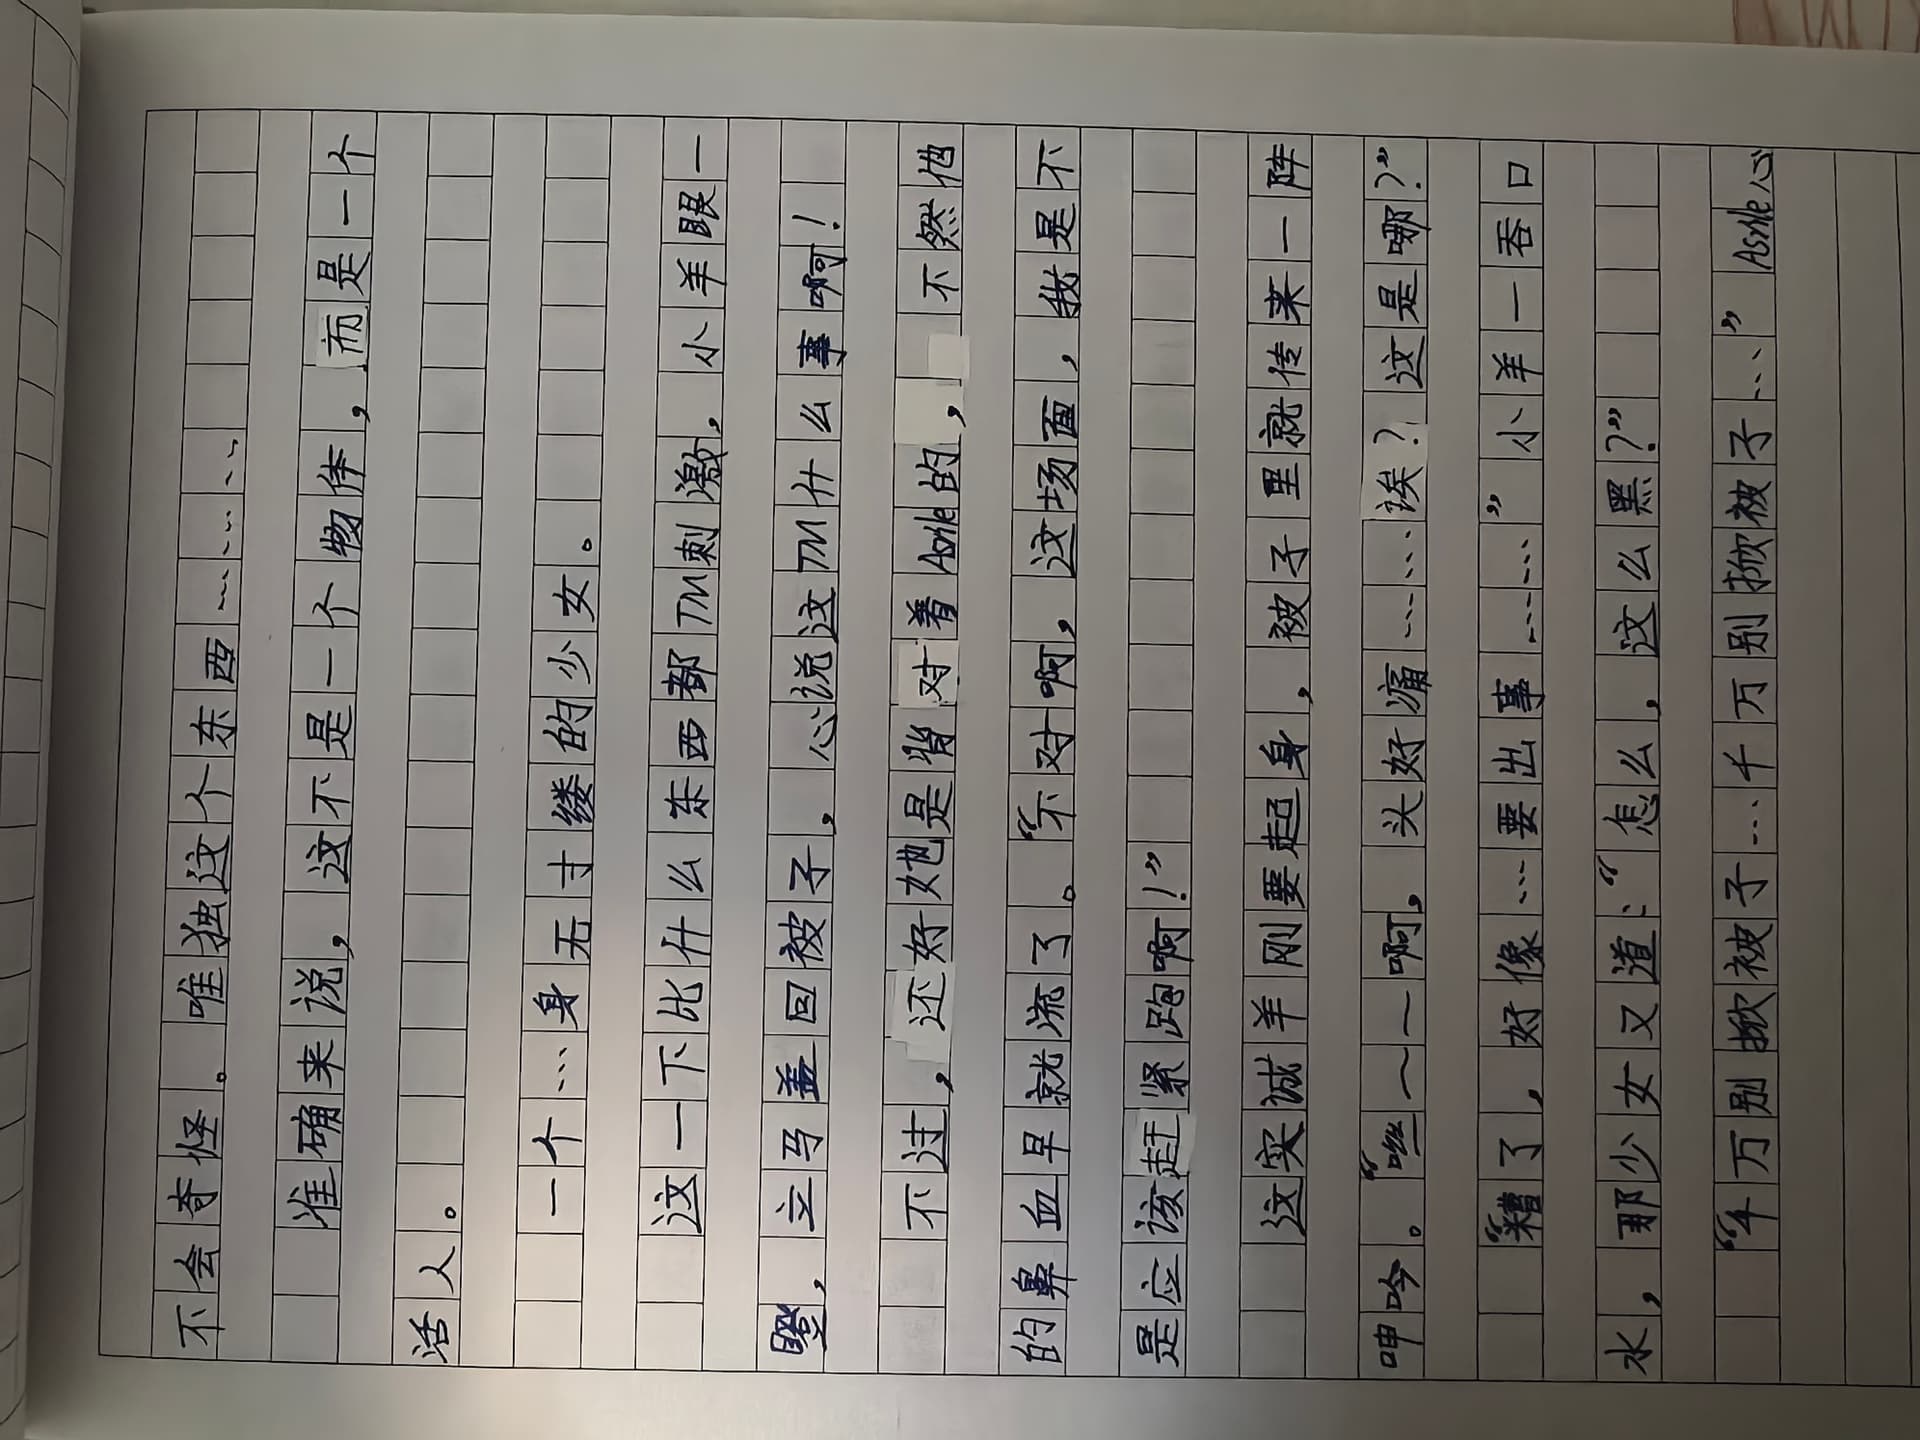 不会奇怪。唯独这个东西…………
准确来说，这不是一个物体，而是一个
活人。
一个…身无寸缕的少女。
这一下比什么东西都TM刺激，小羊眼一
瞪，立马盖回被子，心说这TM什么事啊！
不过，还好她是背对着Ashle的，不然他
的鼻血早就流了。“不对啊，这场面，我是不
是应该赶紧跑啊！”
这实诚羊刚要起身，被子里就传来一阵
呻吟。“咝～～啊，头好痛……诶？这是哪？”
“糟了，好像…要出事……”小羊一吞口
水，那少女又道：“怎么，这么黑？”
“千万别掀被子…千万别掀被子…”Ashle心